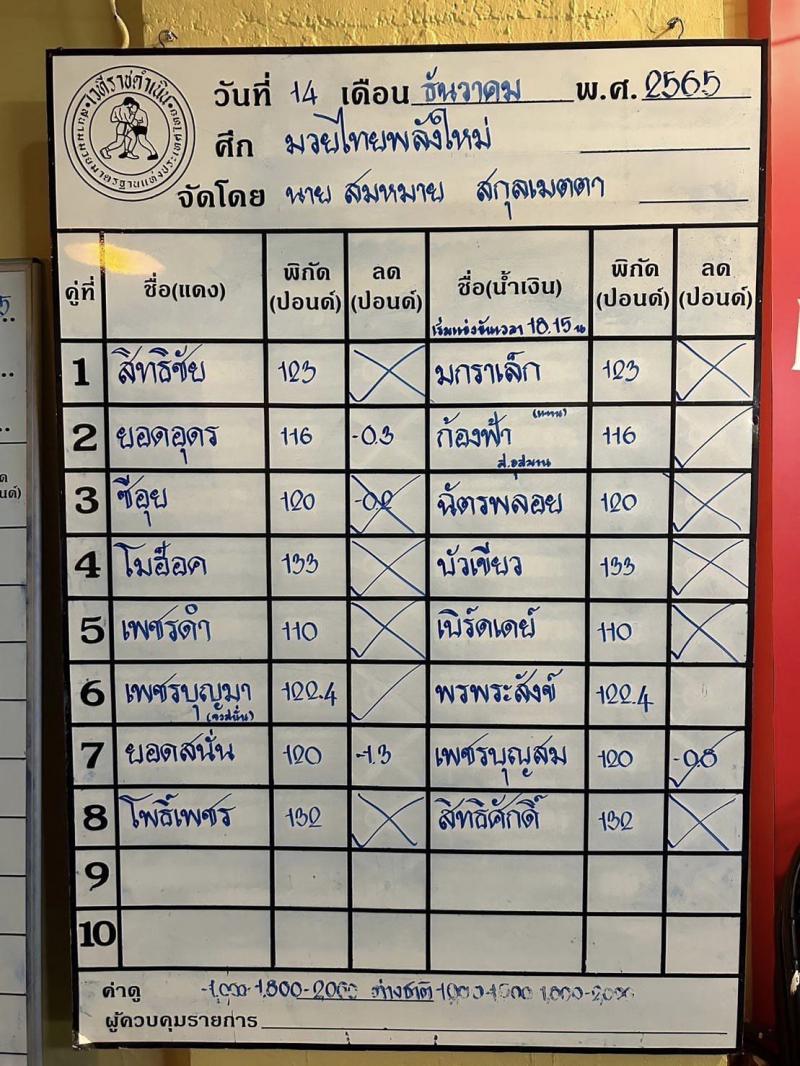 เวทีราชดำเนิน
สนามมวยมาตรฐานแห่งประเทศไทย
วันที่ 14 เดือน ธันวาคม พ.ศ. 2565
ศึก มวยไทยพลังใหม่
จัดโดย นาย สมหมาย สกุลเมตตา
คู่ที่ ชื่อ(แดง) พิกัด (ปอนด์) ลด (ปอนด์) ชื่อ(น้ำเงิน) พิกัด (ปอนด์) ลด (ปอนด์)
เริ่มแข่งขันเวลา 18.15 น
1 สิทธิชัย 123 มกราเล็ก 123
2 ยอดอุดร 116 -0.3 ก้องฟ้า 116
3 ซีอุย 120 -0.2 ฉัตรพลอย 120
4 โมฮ็อค 133 บัวเขียว 133
5 เพชรดำ 110 เบิร์ดเดย์ 110
6 เพชรบุญมา 122.4 พรพระสังข์ 122.4
7 ยอดสนั่น 120 -1.3 เพชรบุญสม 120 -0.8
8 โพธิ์เพชร 132 สิทธิศักดิ์ 132
9
10
ค่าดู -1,000-1,800-2000 ต่างชาติ
ผู้ควบคุมรายการ